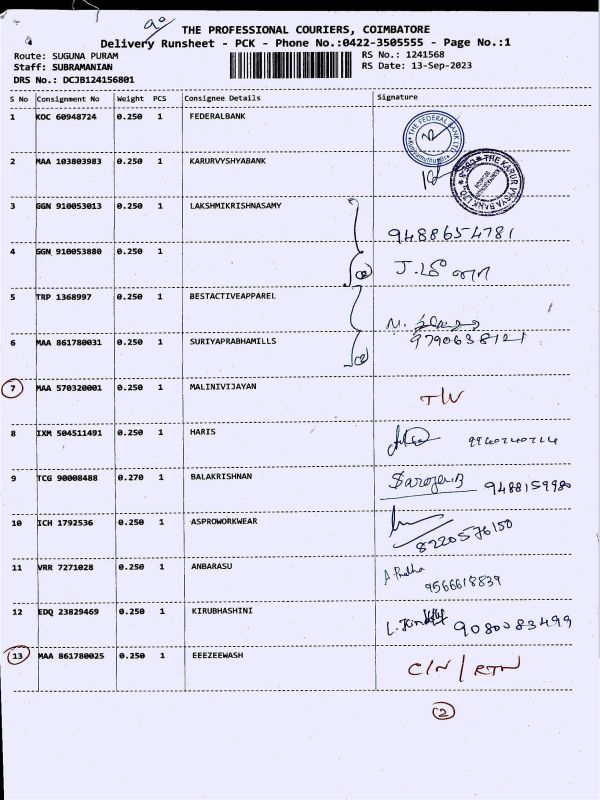 THE PROFESSIONAL COURIERS, COIMBATORE
Delivery Runsheet - PCK - Phone No.:0422-3505555 - Page No.:1
Route: SUGUNA PURAM
RS No.: 1241568
Staff: SUBRAMANIAN
RS Date: 13-Sep-2023
DRS No.: DCJB124156801
S No Consignment No Weight PCS Consignee Details Signature
1 KOC 60948724 0.250 1 FEDERALBANK
THE FEDERAL BANK LTD.
2 MAA 103803983 0.250 1 KARURVYSHYABANK
THE KARUR VYSYA BANK LTD
3 GGN 910053013 0.250 1 LAKSHMIKRISHNASAMY
9488654781
4 GGN 910053880 0.250 1
5 TRP 1368997 0.250 1 BESTACTIVEAPPAREL
6 MAA 861780031 0.250 1 SURIYAPRABHAMILLS
9790638121
7 MAA 570320001 0.250 1 MALINIVIJAYAN
8 IXM 504511491 0.250 1 HARIS
9 TCG 90008488 0.270 1 BALAKRISHNAN
Saroja.B 9488159980
10 ICH 1792536 0.250 1 ASPROWORKWEAR
8220576150
11 VRR 7271028 0.250 1 ANBARASU
9566618839
12 EDQ 23829469 0.250 1 KIRUBHASHINI
9080083499
13 MAA 861780025 0.250 1 EEEZEEWASH C/N / RTN
2